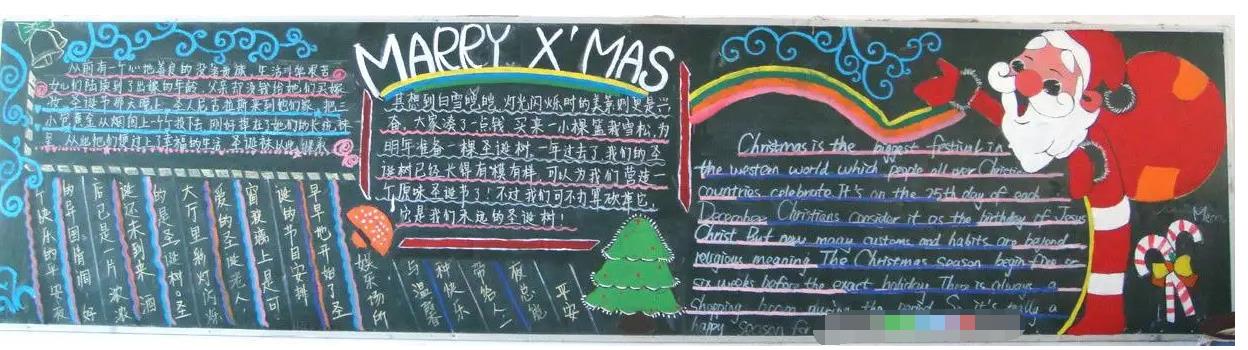 MARRY X'MAS
从前有一个心地善良的没落贵族，生活非常艰苦
女儿们陆续到了出嫁的年龄，父亲却没钱给她们买嫁
妆 圣诞节那天晚上，圣人尼古拉斯来到他们家，把三
小包黄金从烟囱上一个个投下，刚好掉在了她们的长统袜
里，从此他们便过上了幸福的生活 圣诞袜从此
其想到白雪皑皑，灯光闪烁时的美景则更是兴
奋，大家凑了一点钱，买来一小棵盆栽雪松，为
明年准备一棵圣诞树，一年过去了，我们的圣
诞树已经长得有模有样，可以为我们营造一
个原味圣诞节了！不过我们可不打算砍掉它，
它是我们永远的圣诞树！
早早地开始了圣
诞的节目安排
宵夜 上是可
爱的圣诞老人，
大厅里 灯闪烁
的是圣诞树。圣
诞还未到来，酒
后已是一片浓浓
的异国情调，好
个快乐的平安夜
娱乐场所
平安
总能
带给人一
种快乐
与温馨
Christmas is the biggest festival in
the western world which people all over Christian
countries celebrate It's on the 25th day of each
December Christians consider it as the birthday of Jesus
Christ But now many customs and habits are beyond
religious meaning The Christmas Season begin five or
six weeks before the exact holiday There is always a
shopping boom during the period So it's really a
happy season for